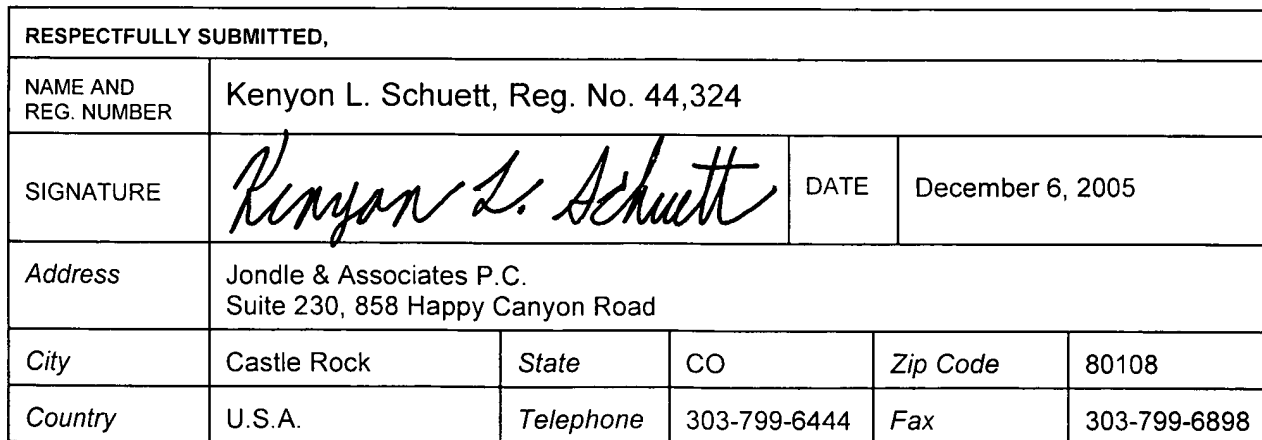 RESPECTFULLY SUBMITTED,
NAME AND REG. NUMBER Kenyon L. Schuett, Reg. No. 44,324
SIGNATURE Kenyon L. Schuett DATE December 6, 2005
Address Jondle & Associates P.C.
Suite 230, 858 Happy Canyon Road
City Castle Rock State CO Zip Code 80108
Country U.S.A. Telephone 303-799-6444 Fax 303-799-6898